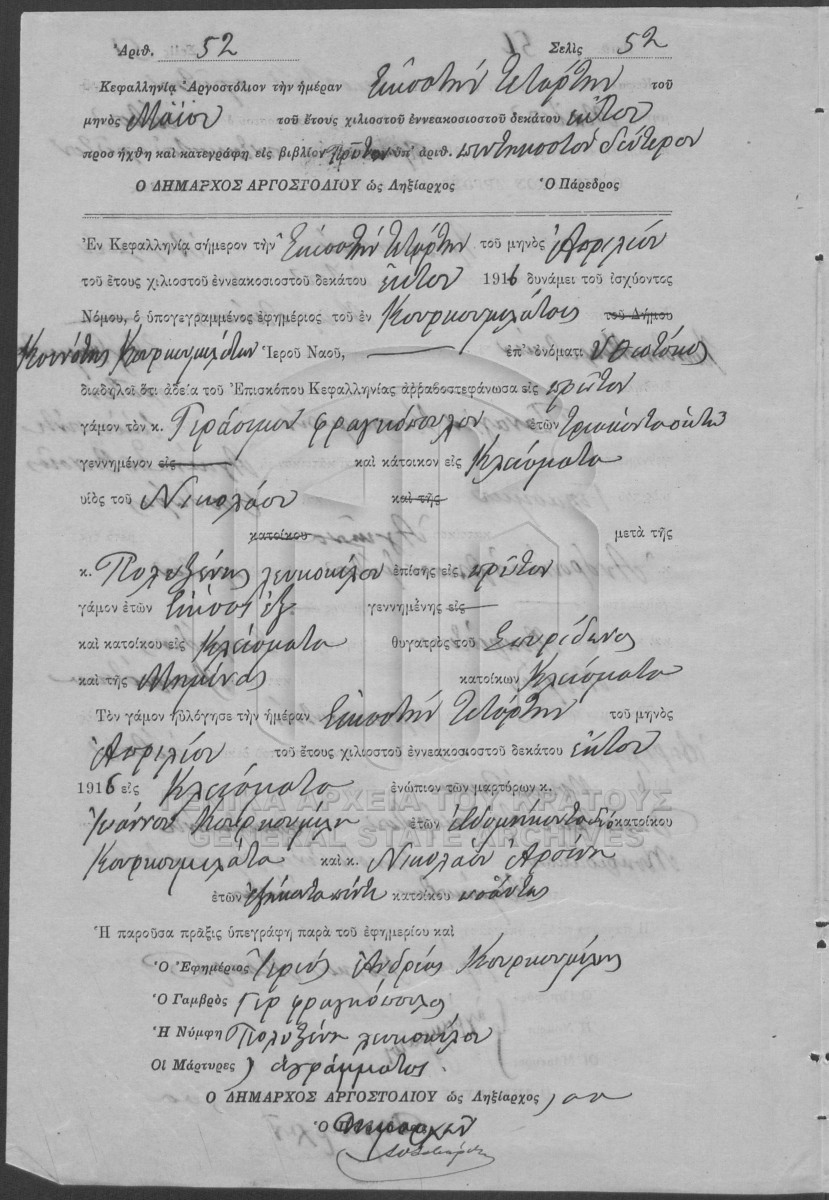 Ἀριθ. 52 Σελὶς 52
Κεφαλληνίᾳ Ἀργοστόλιον τὴν ἡμέραν Εἰκοστὴν τετάρτην τοῦ
μηνὸς Μαΐου τοῦ ἔτους χιλιοστοῦ ἐννεακοσιοστοῦ δεκάτου ἕκτου
προσήχθη καὶ κατεγράφη εἰς βιβλίον πρῶτον ὑπ' ἀριθ. πεντηκοστὸν δεύτερον
Ὁ ΔΗΜΑΡΧΟΣ ΑΡΓΟΣΤΟΛΙΟΥ ὡς Ληξίαρχος Ὁ Πάρεδρος
Ἐν Κεφαλληνίᾳ σήμερον τὴν Εἰκοστὴν τετάρτην τοῦ μηνὸς Ἀπριλίου
τοῦ ἔτους χιλιοστοῦ ἐννεακοσιοστοῦ δεκάτου ἕκτου 1916 δυνάμει τοῦ ἰσχύοντος
Νόμου, ὁ ὑπογεγραμμένος ἐφημέριος τοῦ ἐν Κουρκουμελάτοις τοῦ Δήμου
Κοινότης Κουρκουμελάτων Ἱεροῦ Ναοῦ, ἐπ' ὀνόματι Θεοτόκος
διαδηλοῖ ὅτι ἀδείᾳ τοῦ Ἐπισκόπου Κεφαλληνίας ἀῤῥαβοστεφάνωσα εἰς πρῶτον
γάμον τὸν κ. Γεράσιμον Φραγκόπουλον ἐτῶν
γεννημένον εἰς καὶ κάτοικον εἰς Κλείσματα
υἱὸς τοῦ Νικολάου καὶ τῆς
κατοίκου μετὰ τῆς
κ. Πολυξένης Λευκοκίλου ἐπίσης εἰς πρῶτον
γάμον ἐτῶν εἴκοσι ἓξ γεννημένης εἰς
καὶ κατοίκου εἰς Κλείσματα θυγατρὸς τοῦ Σπυρίδωνος
καὶ τῆς κατοίκων Κλείσματα
Τὸν γάμον ηὐλόγησε τὴν ἡμέραν Εἰκοστὴν τετάρτην τοῦ μηνὸς
Ἀπριλίου τοῦ ἔτους χιλιοστοῦ ἐννεακοσιοστοῦ δεκάτου ἕκτου
1916 εἰς Κλείσματα ἐνώπιον τῶν μαρτύρων κ.
ΓΕΝΙΚΑ ΑΡΧΕΙΑ ΤΟΥ ΚΡΑΤΟΥΣ
Ἰωάννου Κουρκουμέλη ἐτῶν ἑβδομήκοντα δύο κατοίκου
GENERAL STATE ARCHIVES
Κουρκουμελάτα καὶ κ. Νικολάου Ἀρσένη
ἐτῶν ἑξήκοντα πέντε κατοίκου
Ἡ παροῦσα πρᾶξις ὑπεγράφη παρὰ τοῦ ἐφημερίου καὶ
Ὁ Ἐφημέριος Ἱερεὺς Ἀνδρέας Κουρκουμέλης
Ὁ Γαμβρὸς Γερ Φραγκόπουλος
Ἡ Νύμφη Πολυξένη Λευκοκίλου
Οἱ Μάρτυρες ἀγράμματος
Ὁ ΔΗΜΑΡΧΟΣ ΑΡΓΟΣΤΟΛΙΟΥ ὡς Ληξίαρχος
Ὁ